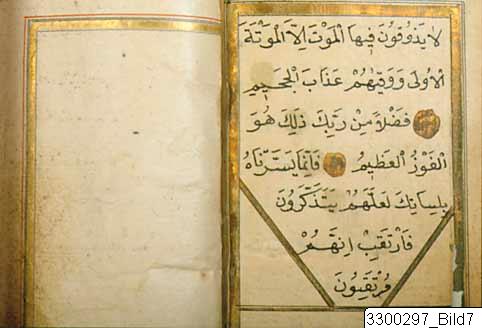 لَا يَذُوقُونَ فِيهَا الْمَوْتَ اِلَّا الْمَوْتَةَ
الْاُولٰى وَوَقٰيهُمْ عَذَابَ الْجَحِيمِ
فَضْلًا مِنْ رَبِّكَ ذٰلِكَ هُوَ
الْفَوْزُ الْعَظِيمُ فَاِنَّمَا يَسَّرْنَاهُ
بِلِسَانِكَ لَعَلَّهُمْ يَتَذَكَّرُونَ
فَارْتَقِبْ اِنَّهُمْ
مُرْتَقِبُونَ
3300297_Bild7